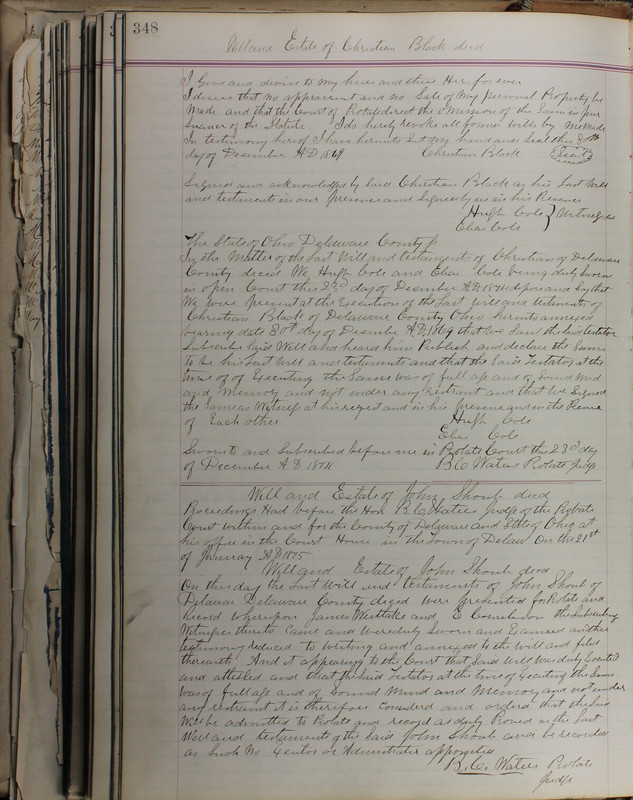 348
Will and Estate of Christian Black decd
I Give and devise to my heirs and their Heirs forever
I desire that no appraisment and no Sale of My personal Property be
Made and that the Court of Probate direct the omission of the Same in pur
suance of the Statute I do hereby revoke all former wills by Me Made
In testimony hereof I have hereunto Set my hand and Seal this 30th
day of December A.D. 1869 Christian Black Seal
Signed and acknowledged by Said Christian Black as his Last Will
and testament in our presence and Signed by us in his Presence
Hugh Cole } Witnesses
Elias Cole
The State of Ohio Delaware County
In the Matter of the Last Will and testament of Christian of Delaware
County decied We Hugh Cole and Elias Cole being duly Sworn
in open Court this 23d day of December A.D. 1874 depose and Say that
We were present at the Execution of the Last Will and testament of
Christian Black of Delaware County Ohio hereunto annexed
bearing date 30th day of December A.D. 1869 that We Saw the Said testator
Subscribe Said Will and heard him Publish and declare the Same
to be his Last Will and testament and that the Said Testator at the
time of of Executing the Same was of full age and of Sound Mind
and Memory and not under any restraint and that We Signed
the Same as Witness at his request and in his presence and in the Presence
of Each other Hugh Cole
Elias Cole
Sworn to and Subscribed before me in Probate Court this 23d day
of December A D 1874 B.C. Waters Probate Judge
Will and Estate of John Shoub decd
Proceedings Had before the Hon B.C. Waters Judge of the Probate
Court within and for the County of Delaware and State of Ohio at
his office in the Court House in the Town of Delaw On the 21st
of January A.D 1875
Will and Estate of John Shoub decd
On this day the Last Will and testament of John Shoub of
Delaware Delaware County decied were presented for Probate and
Record Whereupon James and E the Subscribing
Witnesses thereto Came and were duly Sworn and Examined and their
testimony reduced to writing and annexed to the will and filed
therewith And it appearing to the Court that Said Will was duly Executed
and attested and that the Said Testator at the time of Executing the Same
was of full age and of Sound Mind and Memory and not under
any restraint it is therefore Considerd and orderd that the Said
Will be admitted to Probate and record as duly Proved as the Last
Will and testament of the Said John Shoub and be recorded
as Such No Executor or Administrator appointed
B.C. Waters Probate
Judge